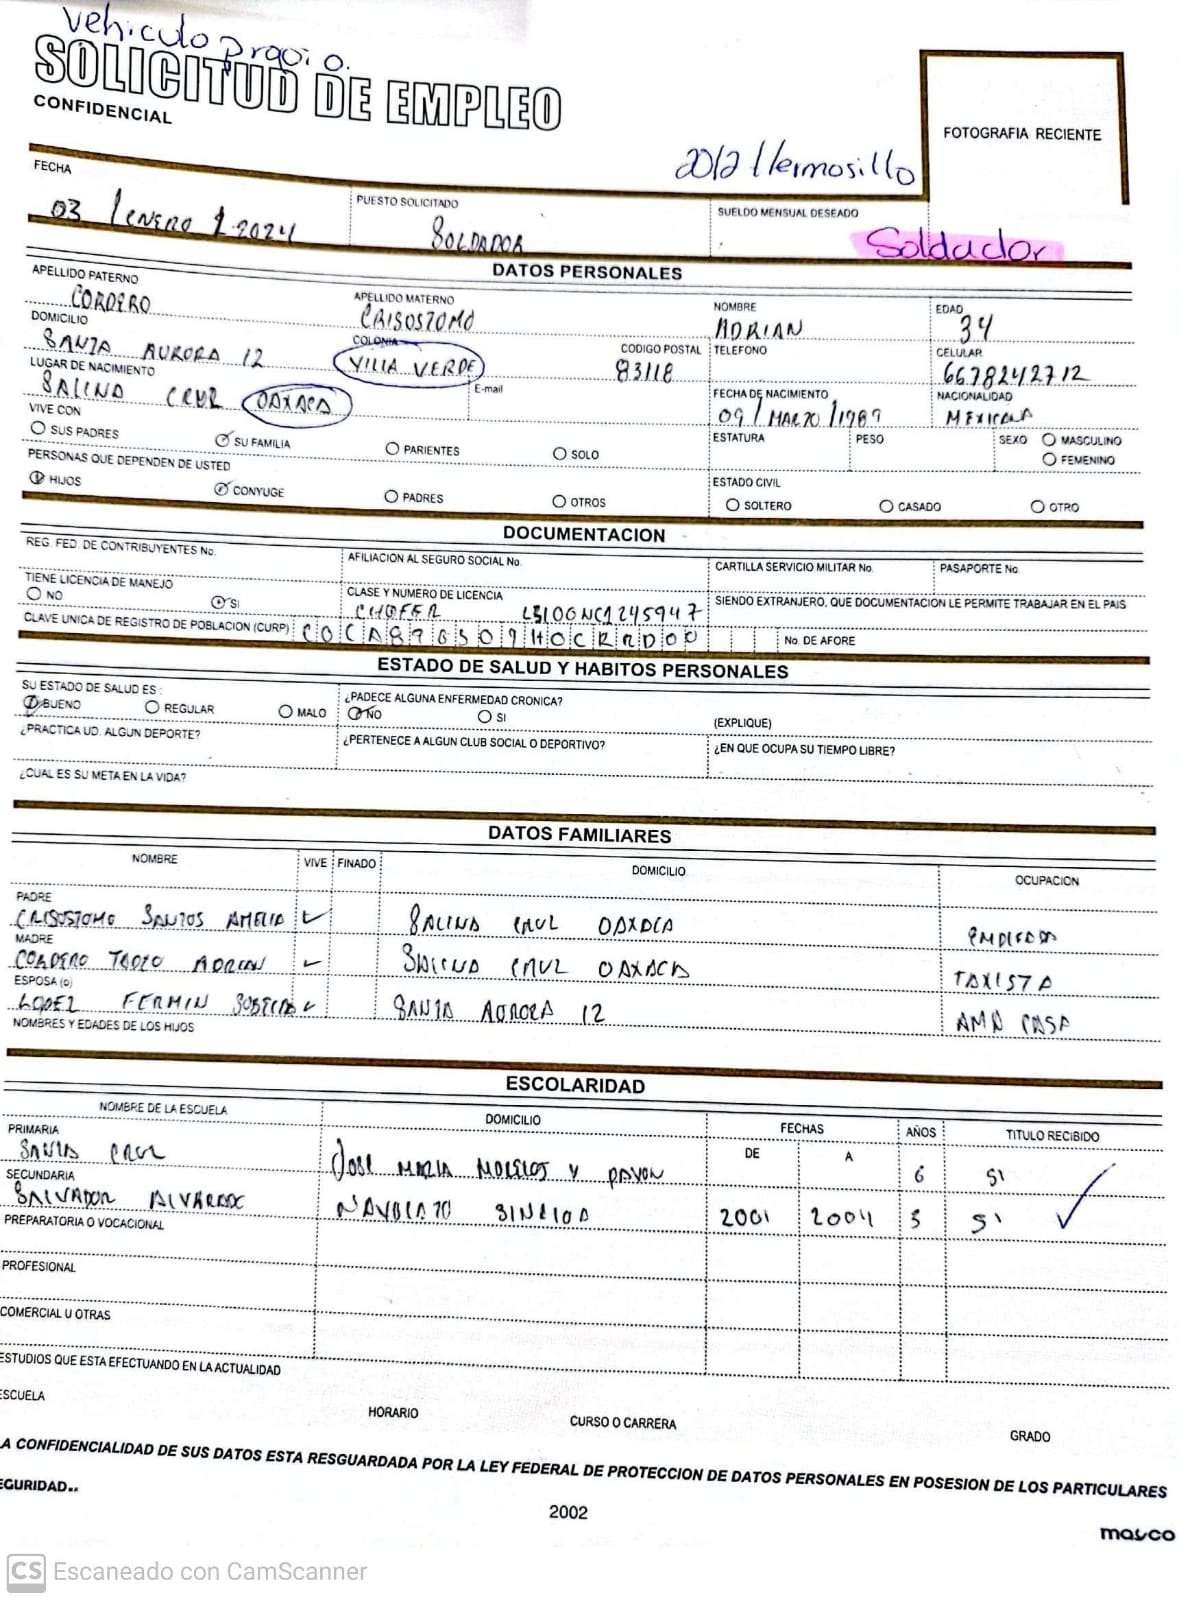 vehiculo
SOLICITUD DE EMPLEO
CONFIDENCIAL
FOTOGRAFIA RECIENTE
2012 Hermosillo
FECHA
03 / ENERO / 2024
PUESTO SOLICITADO
SOLDADOR
SUELDO MENSUAL DESEADO
Soldador
DATOS PERSONALES
APELLIDO PATERNO
CORDERO
APELLIDO MATERNO
CRISOSTOMO
NOMBRE
ADRIAN
EDAD
34
DOMICILIO
SANTA AURORA 12
COLONIA
VILLA VERDE
CODIGO POSTAL
83118
TELEFONO
CELULAR
6678242712
LUGAR DE NACIMIENTO
SALINA CRUZ OAXACA
E-mail
FECHA DE NACIMIENTO
09 / MARZO / 1989
NACIONALIDAD
MEXICANA
VIVE CON
SUS PADRES
SU FAMILIA
PARIENTES
SOLO
ESTATURA
PESO
SEXO
MASCULINO
FEMENINO
PERSONAS QUE DEPENDEN DE USTED
HIJOS
CONYUGE
PADRES
OTROS
ESTADO CIVIL
SOLTERO
CASADO
OTRO
DOCUMENTACION
REG. FED. DE CONTRIBUYENTES No.
AFILIACION AL SEGURO SOCIAL No.
CARTILLA SERVICIO MILITAR No.
PASAPORTE No.
TIENE LICENCIA DE MANEJO
NO
SI
CLASE Y NUMERO DE LICENCIA
CHOFER
SIENDO EXTRANJERO, QUE DOCUMENTACION LE PERMITE TRABAJAR EN EL PAIS
CLAVE UNICA DE REGISTRO DE POBLACION (CURP)
No. DE AFORE
ESTADO DE SALUD Y HABITOS PERSONALES
SU ESTADO DE SALUD ES :
BUENO
REGULAR
MALO
¿PADECE ALGUNA ENFERMEDAD CRONICA?
NO
SI
(EXPLIQUE)
¿PRACTICA UD. ALGUN DEPORTE?
¿PERTENECE A ALGUN CLUB SOCIAL O DEPORTIVO?
¿EN QUE OCUPA SU TIEMPO LIBRE?
¿CUAL ES SU META EN LA VIDA?
DATOS FAMILIARES
NOMBRE
VIVE
FINADO
DOMICILIO
OCUPACION
PADRE
CRISOSTOMO SANTOS AMELIA
SALINA CRUZ OAXACA
MADRE
CORDERO ADRIAN
SALINA CRUZ OAXACA
TAXISTA
ESPOSA (O)
LOPEZ FERMIN
SANTA AURORA 12
AMA CASA
NOMBRES Y EDADES DE LOS HIJOS
ESCOLARIDAD
NOMBRE DE LA ESCUELA
DOMICILIO
FECHAS
DE
A
AÑOS
TITULO RECIBIDO
PRIMARIA
SANTA CRUZ
JOSE MARIA MORELOS Y PAVON
6
SI
SECUNDARIA
SALVADOR ALVARADO
NAVOLATO SINALOA
2001
2004
3
SI
PREPARATORIA O VOCACIONAL
PROFESIONAL
COMERCIAL U OTRAS
ESTUDIOS QUE ESTA EFECTUANDO EN LA ACTUALIDAD
ESCUELA
HORARIO
CURSO O CARRERA
GRADO
LA CONFIDENCIALIDAD DE SUS DATOS ESTA RESGUARDADA POR LA LEY FEDERAL DE PROTECCION DE DATOS PERSONALES EN POSESION DE LOS PARTICULARES
EGURIDAD..
2002
CS Escaneado con CamScanner